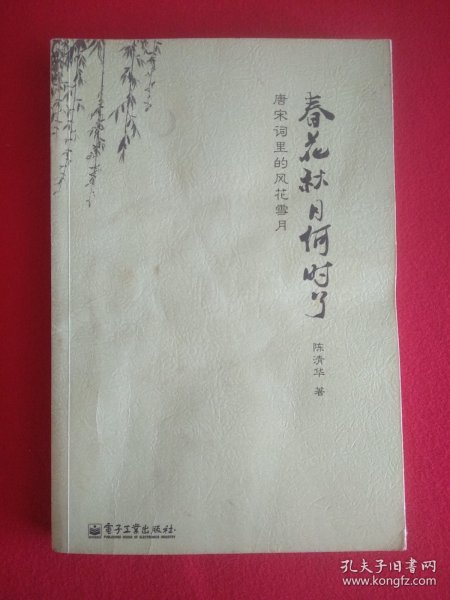 春花秋月何时了
唐宋词里的风花雪月
陈清华 著
電子工業出版社
PUBLISHING HOUSE OF ELECTRONICS INDUSTRY
孔夫子旧书网
www.kongfz.com